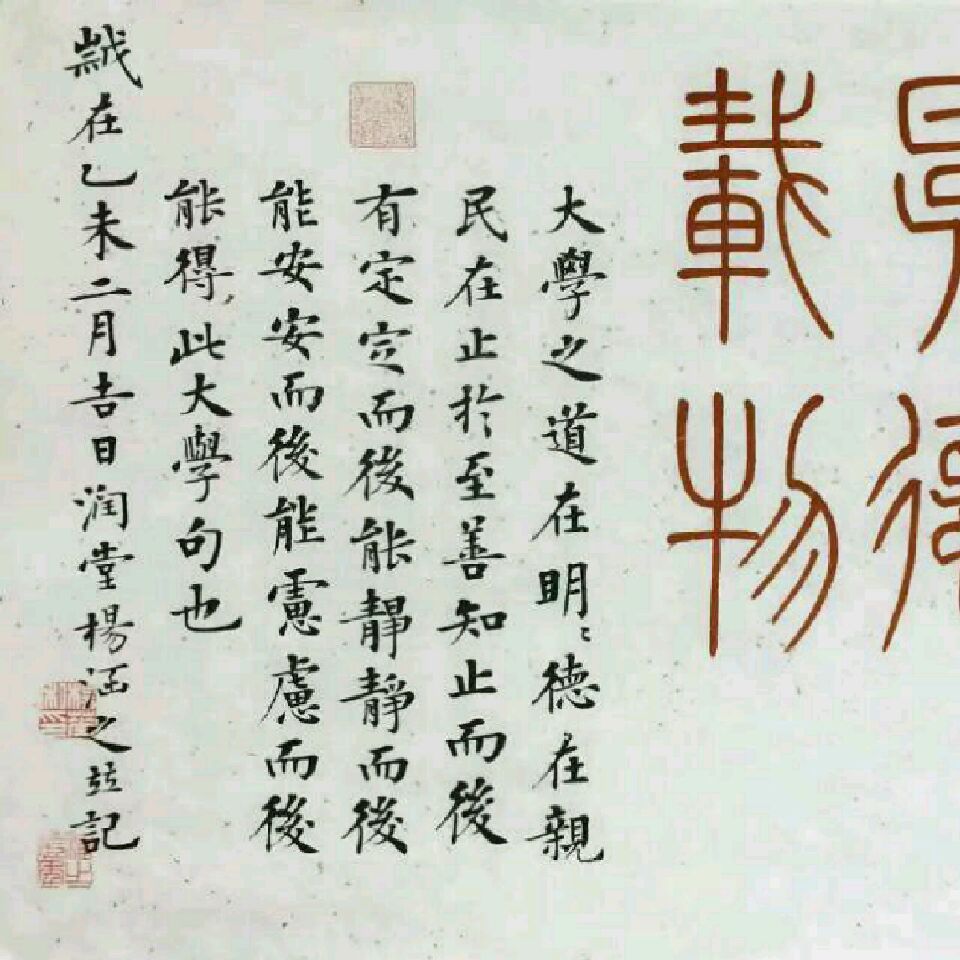 厚德
載物
大學之道在明〻德在親
民在止於至善知止而後
有定定而後能靜靜而後
能安安而後能慮慮而後
能得此大學句也
歲在乙未二月吉日潤堂楊涵之並記